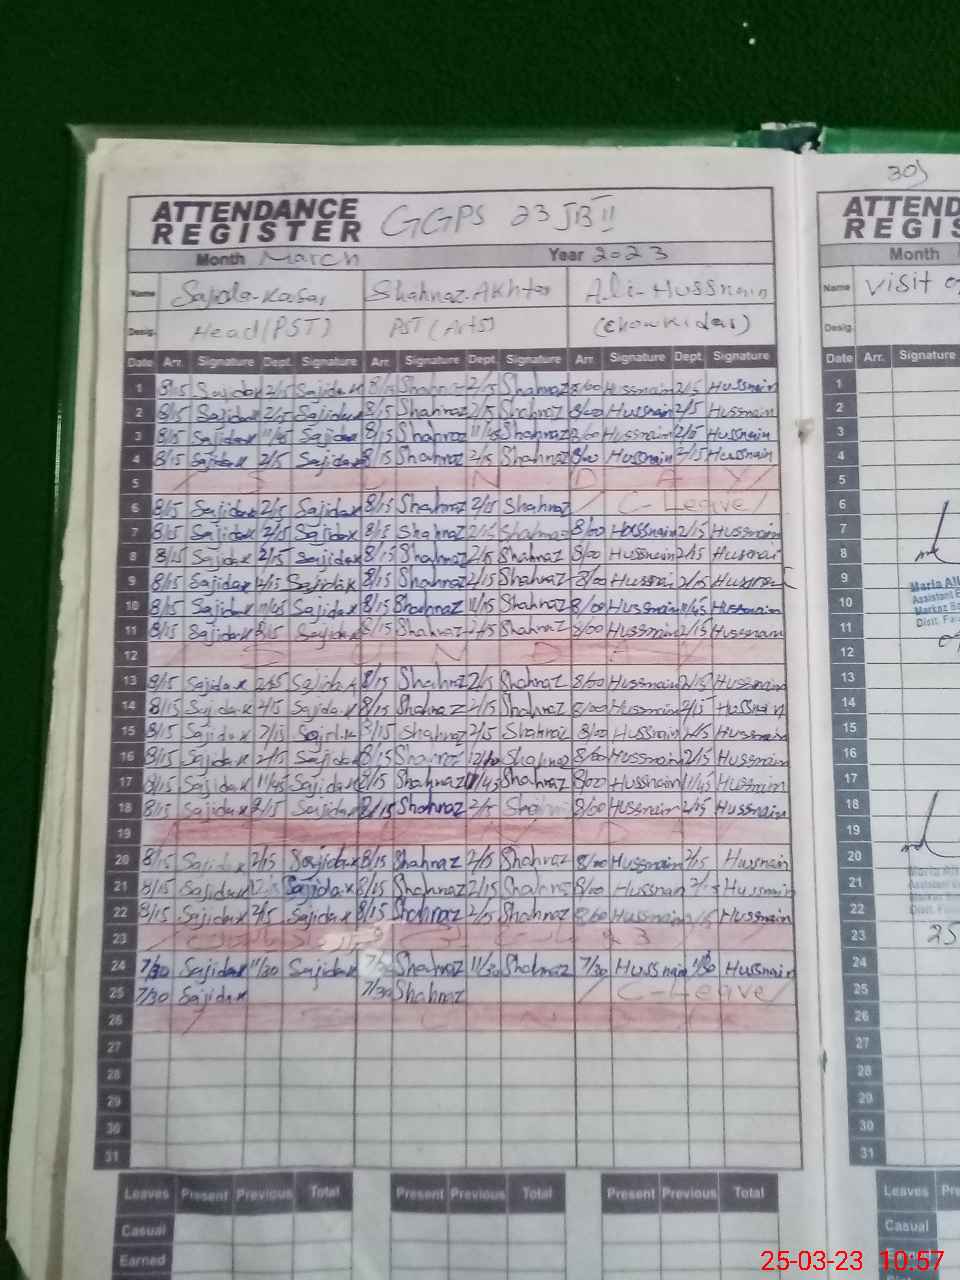 30)
ATTENDANCE REGISTER GGPS 23 JB II
ATTEND
REGIS
Month March Year 2023
Month
Name Sajida-Kasar Shahnaz-Akhtar Ali-Hussnain
Name Visit of
Desig. Head (PST) PST (Arts) (Chowkidar)
Desig.
Date Arr. Signature Dept. Signature Arr. Signature Dept. Signature Arr. Signature Dept. Signature
Date Arr. Signature
1 8/15 Sajidax 2/15 Sajidax 8/15 Shahnaz 2/15 Shahnaz 8/00 Hussnain 2/15 Hussnain
2 8/15 Sajidax 2/15 Sajidax 8/15 Shahnaz 2/15 Shahnaz 8/00 Hussnain 2/15 Hussnain
3 8/15 Sajidax 11/45 Sajidax 8/15 Shahnaz 11/45 Shahnaz 8/00 Hussnain Hussnain
4 8/15 Sajidax 2/15 Sajidax 8/15 Shahnaz 2/15 Shahnaz 8/00 Hussnain 2/15 Hussnain
5 S U N D A Y
6 8/15 Sajidax 2/15 Sajidax 8/15 Shahnaz 2/15 Shahnaz C-Leave
7 8/15 Sajidax 2/15 Sajidax 8/15 Shahnaz 2/15 Shahnaz 8/00 Hussnain 2/15 Hussnain
8 8/15 Sajidax 2/15 Sajidax 8/15 Shahnaz 2/15 Shahnaz 8/00 Hussnain 2/15 Hussnain
9 8/15 Sajidax 2/15 Sajidax 8/15 Shahnaz 2/15 Shahnaz 8/00 Hussnain 2/15 Hussnain
10 8/15 Sajidax 11/45 Sajidax 8/15 Shahnaz 11/15 Shahnaz 8/00 Hussnain 11/45 Hussnain
11 8/15 Sajidax 2/15 Sajidax 8/15 Shahnaz 2/15 Shahnaz 8/00 Hussnain 2/15 Hussnain
12 S U N D A Y
13 8/15 Sajidax 2/15 Sajidax 8/15 Shahnaz 2/15 Shahnaz 8/00 Hussnain 2/15 Hussnain
14 8/15 Sajidax 2/15 Sajidax 8/15 Shahnaz 2/15 Shahnaz 8/00 Hussnain 2/15 Hussnain
15 8/15 Sajidax 2/15 Sajidax 8/15 Shahnaz 2/15 Shahnaz 8/00 Hussnain 2/15 Hussnain
16 8/15 Sajidax 2/15 Sajidax 8/15 Shahnaz Shahnaz 8/00 Hussnain 2/15 Hussnain
17 8/15 Sajidax 11/45 Sajidax 8/15 Shahnaz 11/45 Shahnaz 8/00 Hussnain 11/45 Hussnain
18 8/15 Sajidax 2/15 Sajidax 8/15 Shahnaz 2/15 Shahnaz 8/00 Hussnain 2/15 Hussnain
19
20 8/15 Sajidax 2/15 Sajidax 8/15 Shahnaz 2/15 Shahnaz 8/00 Hussnain 2/15 Hussnain
21 8/15 Sajidax Sajidax 8/15 Shahnaz 2/15 Shahnaz 8/00 Hussnain 2/15 Hussnain
22 8/15 Sajidax 2/15 Sajidax 8/15 Shahnaz 2/15 Shahnaz 8/00 Hussnain Hussnain
23
24 7/30 Sajidax 11/30 Sajidax 7/30 Shahnaz 11/30 Shahnaz 7/30 Hussnain 11/30 Hussnain
25 7/30 Sajidax 7/30 Shahnaz C-Leave
26
27
28
29
30
31
1
2
3
4
5
6
7
8
9
Maria
Assistant
10
Markaz
Distt.
11
12
13
14
15
16
17
18
19
20
21
22
23 25
24
25
26
27
28
29
30
31
Leaves Present Previous Total Present Previous Total Present Previous Total
Casual
Earned
Leaves
Casual
Earned
25-03-23 10:57